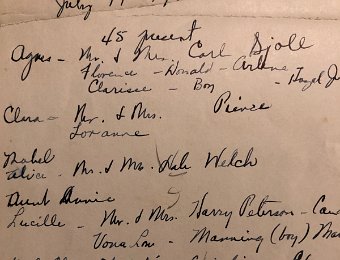 July 19
45 present
Agnes - Mr. & Mrs. Carl Bjoll
Florence - Donald - Arlene
Clarisse - Boy - Hazel
Clara - Mr. & Mrs. Pierce
Loranne
Mabel
Alice - Mr. & Mrs. Welch
Aunt Annie
Lucille - Mr. & Mrs. Harry Peterson -
Vona Lou - Manning (boy)